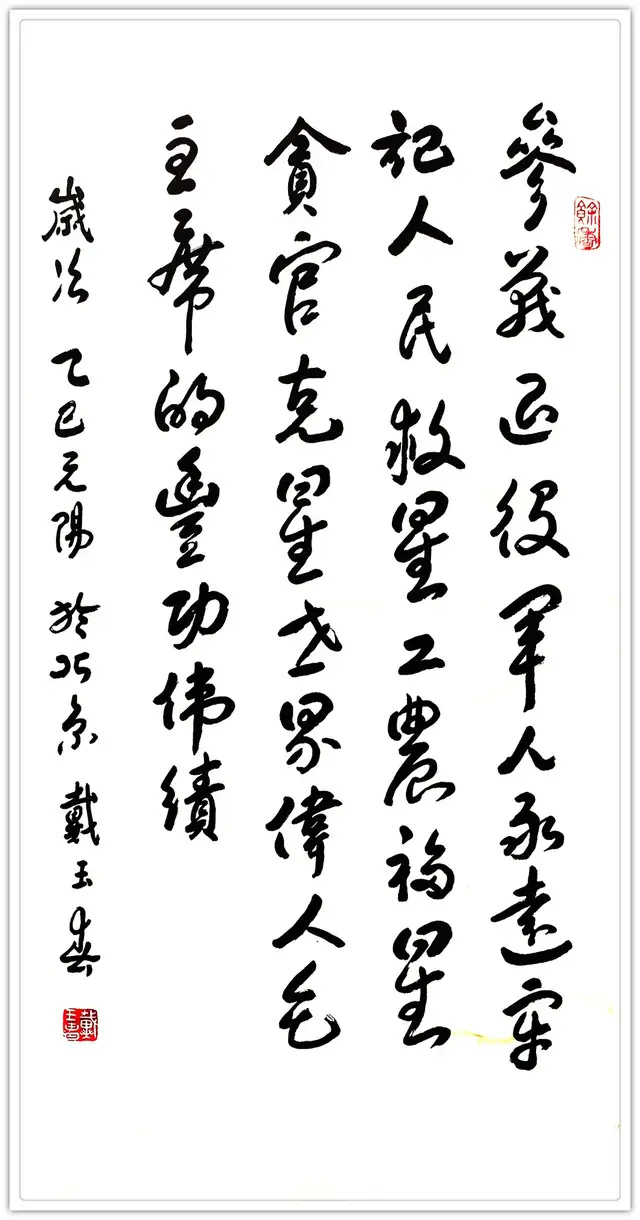 參戰退役軍人永遠牢
記人民救星工農福星
貪官克星世界偉人毛
主席的豐功伟績
歲次乙巳元陽於北京戴玉春